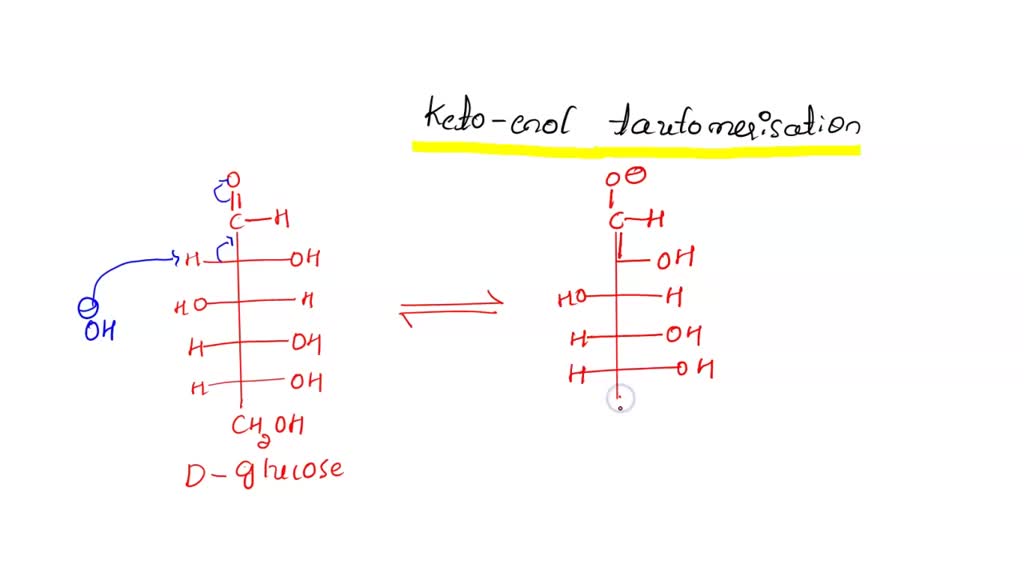 Keto-enol tautomerisation
O
O ⊖
C-H
C-H
H OH
OH
HO H
HO H
⊖
OH
H OH
H OH
H OH
H OH
CH2OH
D-glucose